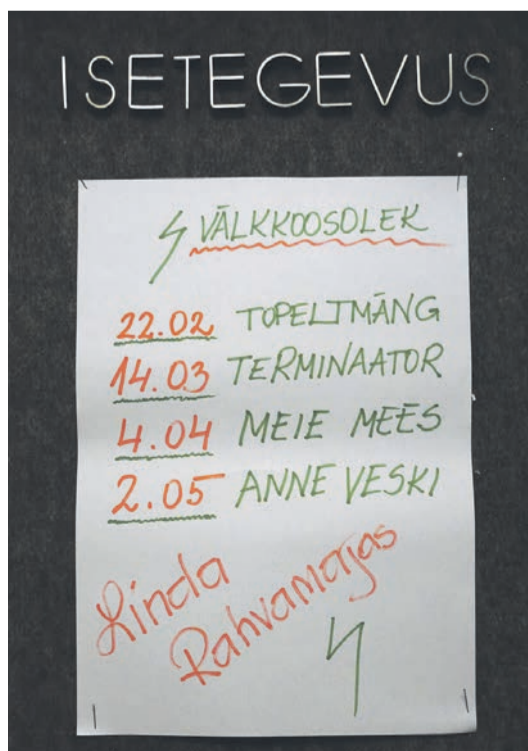 ISETEGEVUS
VÄLKKOOSOLEK
22.02 TOPELTMÄNG
14.03 TERMINAATOR
4.04 MEIE MEES
2.05 ANNE VESKI
Linda
Rahvamajas